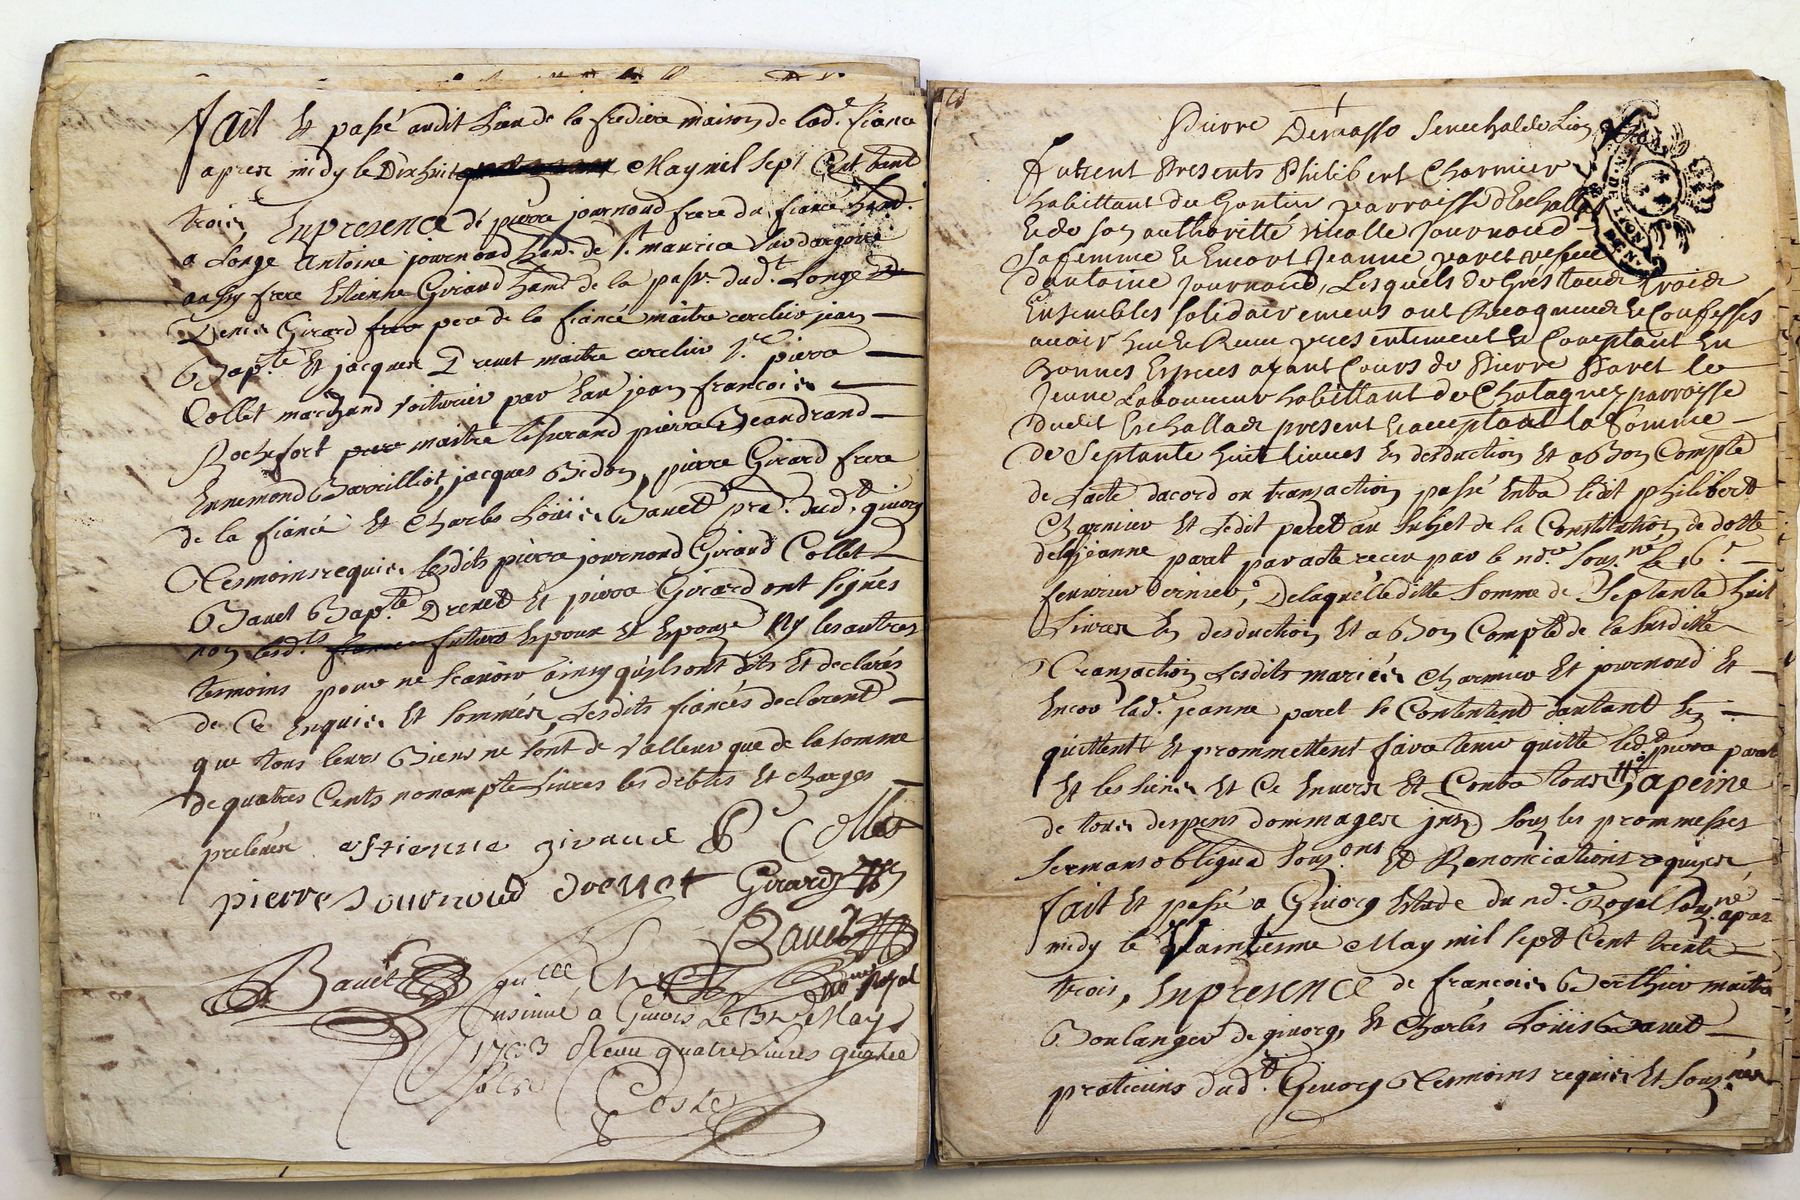 fait Et passé audit lieu de la frediera maison de lad.e fiancé
apres midy le Dixhuit May mil sept Cent trent
trois, En presence de pierre journoud frere du fiancé
a Longe Antoine journoud hand. de St. maurice sur dargoire
aussy frere Estienne Giraud hand de la parr. dud.t Longe
Denis Girard pere de la fiancé maitre cerclier jean
Bap.te Et jacques Drenet maitre cerclier S.r pierre
Collet marchand voiturier par Eau jean francois
Rochefort maitre tisserand pierre Beandrand
Ennemond Barrilliot, jacques Bidon, pierre Girard frere
de la fiancé Et Charles Loüis Bauet pra. dud.t givors
Tesmoins requis lesdits pierre journoud Giraud Collet
Bauet Bap.te Drenet Et pierre Girard ont signés
non lesd.ts futurs Epoux Et Epouse Ny les autres
tesmoins pour ne scavoir ainsy quils ont dits Et declarés
de Ce Enquis Et sommés, Lesdits fiancés declarent
que tous leurs Biens ne sont de valleur que de la somme
de quatres Cents nonante Livres les debtes Et charges
prelevés estienne giraud Collet
pierre Journoud drenet Girard
Bauet
Bauet no.re Royal
Insinué a Givors Le May
1733 Receu quatre Livres
Coste
Pierre Demasso Senechal de Lion
Furent Presents Philibert Charmier
habittant du Gontin parroisse dEchallas
Et de son authoritté Journoud
sa femme Et Encort Jeanne paret vefue
dantoine Journoud, Lesquels de Grés tous trois
Ensembles solidairement ont Recogneus Et Confessés
auoir heu Et Receu presentement Et Comptant En
Bonnes Especes ayant Cours de Pierre Paret le
Jeune Laboureur habittant de Chatagnez parroisse
dudit Echallas present Et acceptant la Somme
de Septante huit Livres En desduction Et a Bon Compte
de Lacte dacord ou transaction passé Entre ledit philibert
Charmier Et Ledit paret au Subjet de la Constitution de dotte
de la jeanne paret par acte receu par le nd.re sous.né le 16.e
feuvrier dernier, De laquelle ditte Somme de Septante huit
Livres En desduction Et a Bon Compte de la susditte
Transaction Lesdits mariés Charmier Et journoud Et
Encor lad. jeanne paret se Contentent dautant En
quittent Et prommettent faire tenir quitte led.t pierre paret
Et les siens Et Ce Envers Et Contre tous a peine
de tous despens dommages sous les prommesses
sermans obligua Et Renonciations requises
fait Et passé a Givors Estude du nd.re Royal sous.né apres
midy le Vaintieme May mil sept Cent trente
trois, En presence de francois Berthier maitre
Boulanger de givors, Et Charles Loüis Bauet
praticiens dud.t Givors Tesmoins requis Et sous.nés